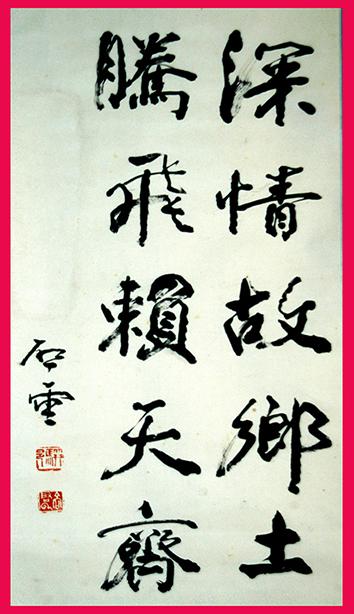 深情故鄉土
騰飛賴天齊
石雲